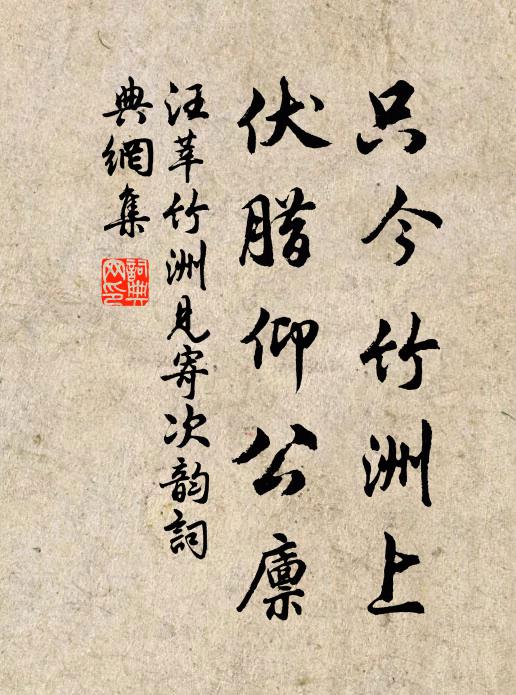 只今竹洲上
伏腊仰公廪
汪莘竹洲見寄次韵詞
典網集
詞典网印